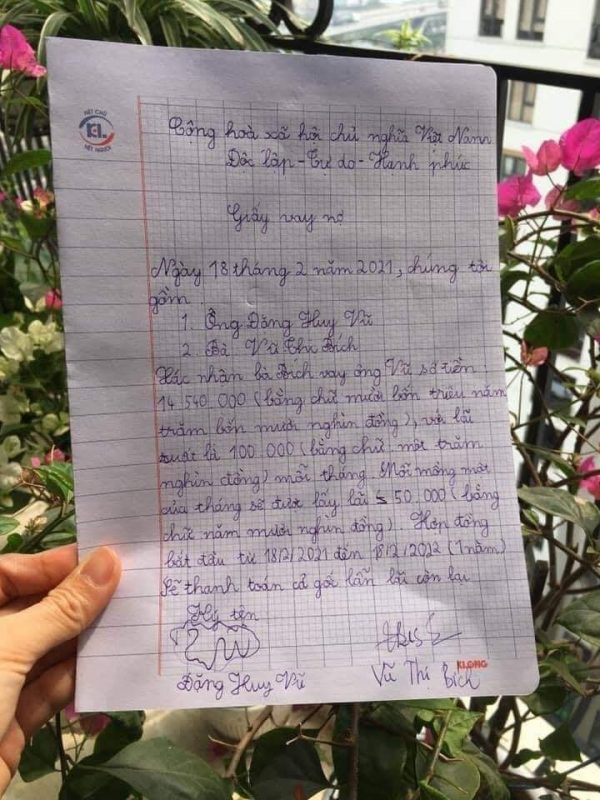 HẾT CHỮ
KL
HẾT NGƯỜI
Cộng hoà xã hội chủ nghĩa Việt Nam
Độc lập - Tự do - Hạnh phúc
Giấy vay nợ
Ngày 18 tháng 2 năm 2021, chúng tôi
gồm
1. Ông Đặng Huy Vũ
2. Bà Vũ Thị Bích
Xác nhận bà Bích vay ông Vũ số tiền
14 540 000 (bằng chữ mười bốn triệu năm
trăm bốn mươi nghìn đồng), với lãi
suất là 100.000 (bằng chữ một trăm
nghìn đồng) mỗi tháng. Mỗi mồng một
của tháng sẽ được lấy lãi 50.000 (bằng
chữ năm mươi nghìn đồng). Hợp đồng
bắt đầu từ 18/2/2021 đến 18/2/2022 (1 năm)
Sẽ thanh toán cả gốc lẫn lãi còn lại
Ký tên
KLONG
Đặng Huy Vũ
Vũ Thị Bích